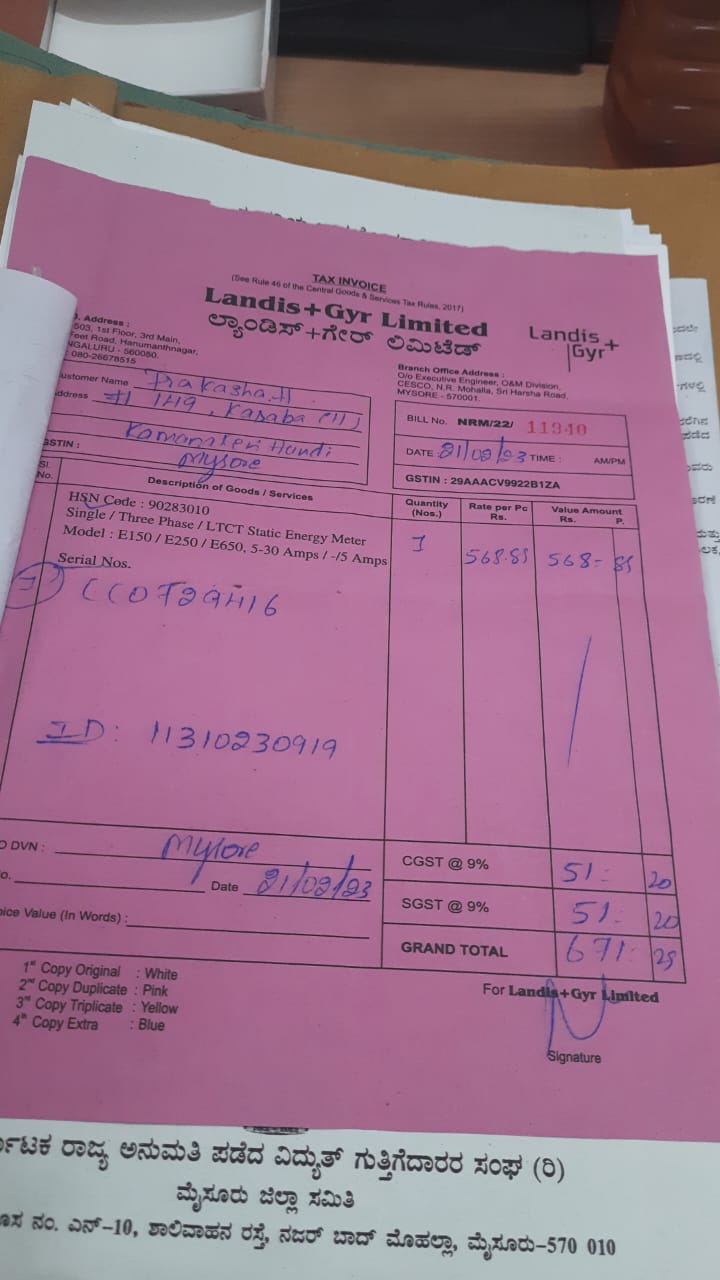 TAX INVOICE
(See Rule 46 of the Central Goods & Services Tax Rules, 2017)
Landis+Gyr Limited
ಲ್ಯಾಂಡಿಸ್+ಗೇರ್ ಲಿಮಿಟೆಡ್
Landis+
Gyr
. Address :
503, 1st Floor, 3rd Main,
Feet Road, Hanumanthnagar,
NGALURU - 560080.
: 080-26678515
Branch Office Address :
O/o Executive Engineer, O&M Division,
CESCO, N.R. Mohalla, Sri Harsha Road,
MYSORE - 570001.
ustomer Name Prakasha.H
ddress #1 149, Kasaba (H),
Hundi
Mysore
GSTIN :
BILL No. NRM/22/ 11940
DATE 21/02/23 TIME : AM/PM
GSTIN : 29AAACV9922B1ZA
Sl. No.
Description of Goods / Services
Quantity (Nos.)
Rate per Pc Rs.
Value Amount Rs. P.
HSN Code : 90283010
Single / Three Phase / LTCT Static Energy Meter
Model : E150 / E250 / E650, 5-30 Amps / -/5 Amps
1 568.85 568- 85
Serial Nos.
1) CC0729416
ID: 11310230919
O DVN : Mysore
o. Date 21/02/23
oice Value (In Words) :
CGST @ 9% 51: 20
SGST @ 9% 51: 20
GRAND TOTAL 671: 25
1st Copy Original : White
2nd Copy Duplicate : Pink
3rd Copy Triplicate : Yellow
4th Copy Extra : Blue
For Landis+Gyr Limited
Signature
ರ್ನಾಟಕ ರಾಜ್ಯ ಅನುಮತಿ ಪಡೆದ ವಿದ್ಯುತ್ ಗುತ್ತಿಗೆದಾರರ ಸಂಘ (ರಿ)
ಮೈಸೂರು ಜಿಲ್ಲಾ ಸಮಿತಿ
ನಂ. ಎನ್-10, ಶಾಲಿವಾಹನ ರಸ್ತೆ, ನಜರ್ ಬಾದ್ ಮೊಹಲ್ಲಾ, ಮೈಸೂರು-570 010